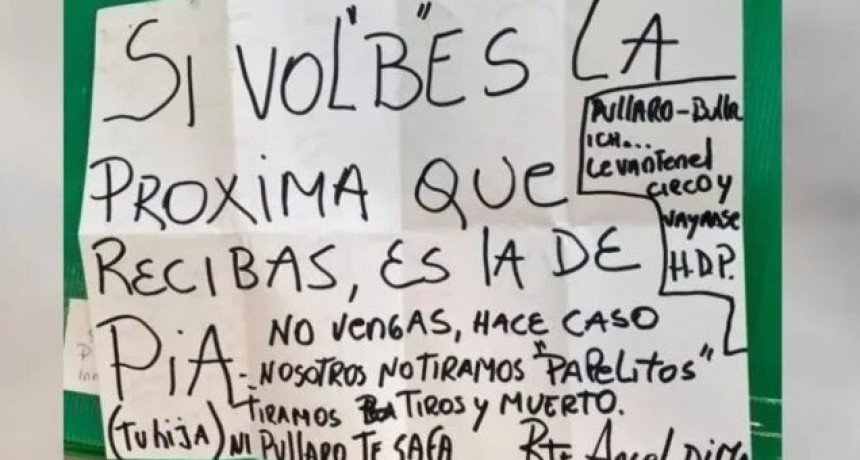 SI VOL"B"ES LA
PROXIMA QUE
RECIBAS, ES LA DE
PIA-
(Tu hija)
PULLARO-Bulla
ICH...
Levanten el
circo y
vayanse
H.D.P.
NO VENGAS, HACE CASO
NOSOTROS NO TIRAMOS "PAPELITOS"
TIRAMOS TIROS y MUERTO.
NI PULLARO TE SAFA
Rte Angel